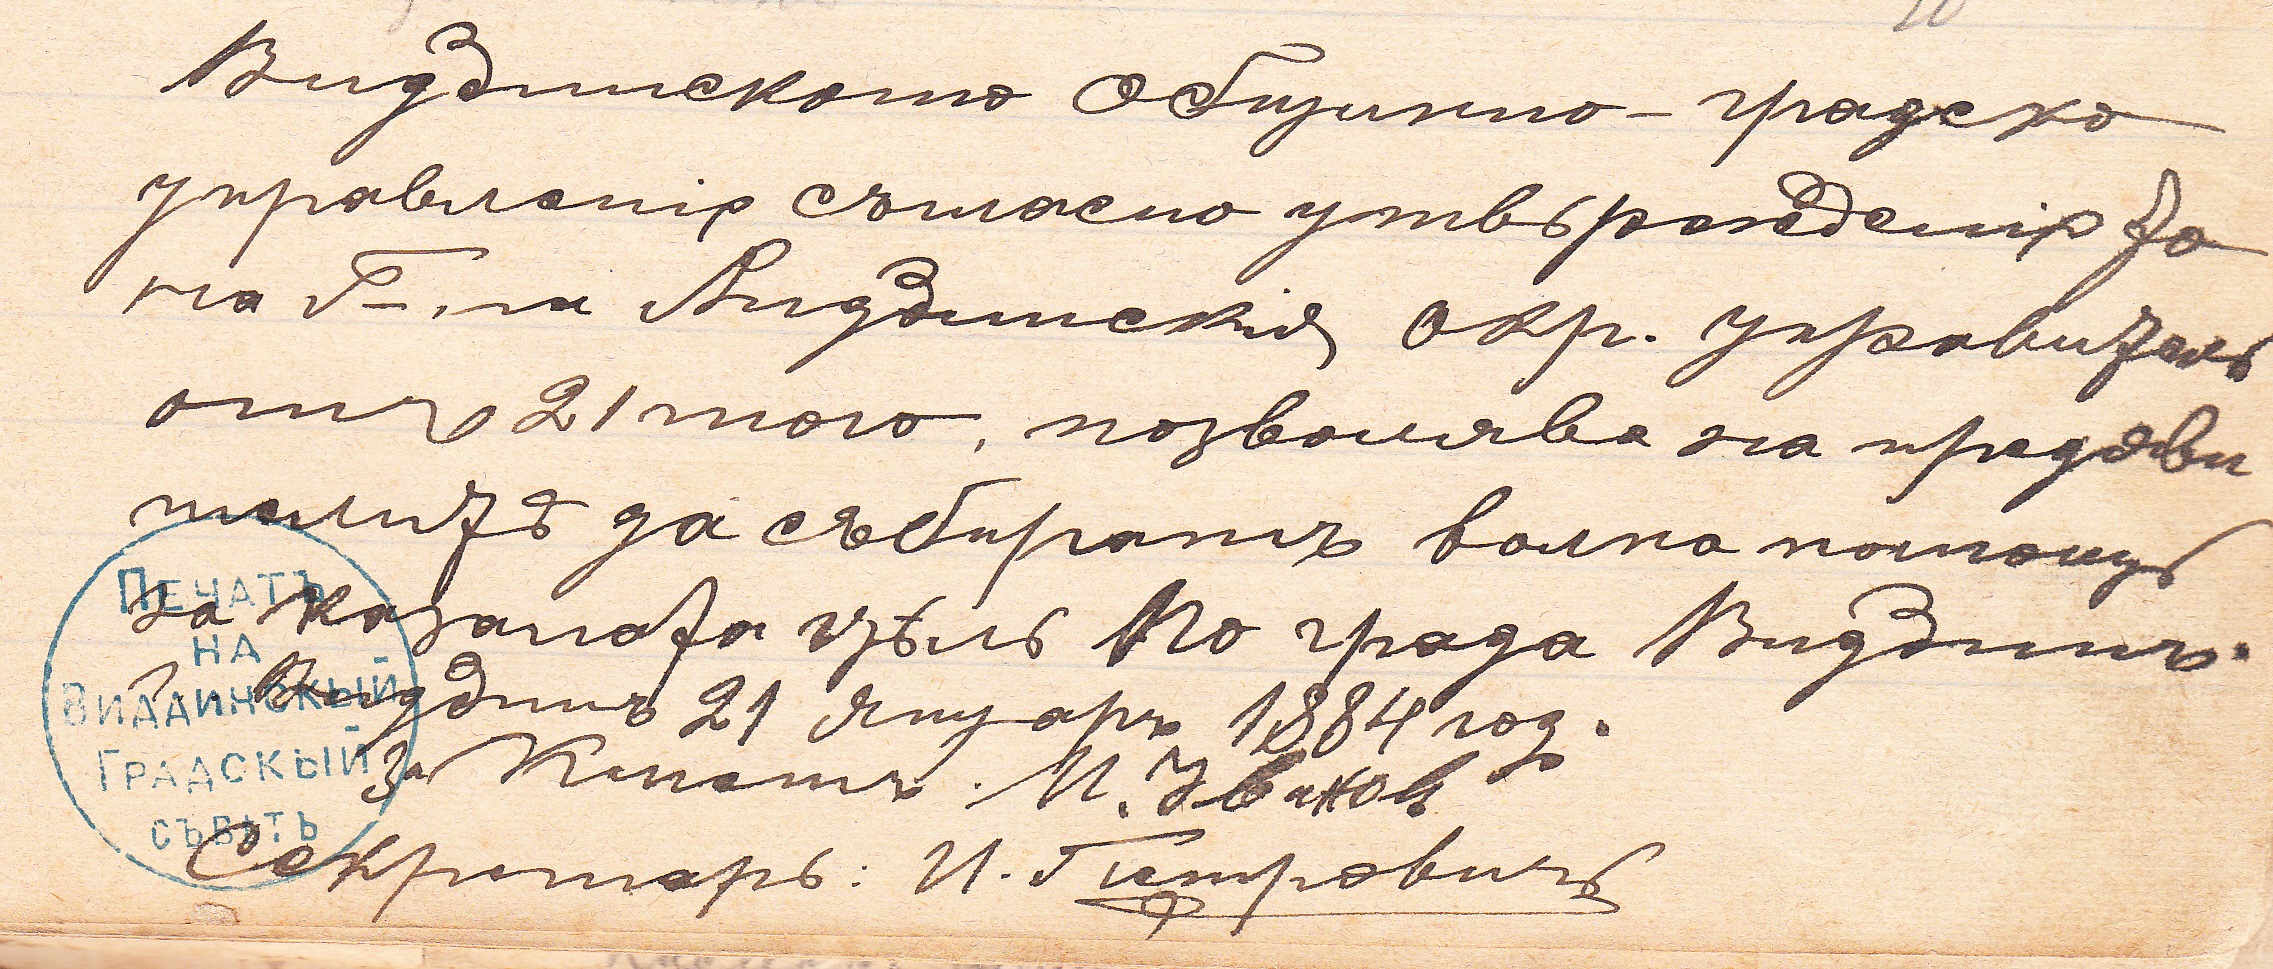 Видинското Общинно-градско
управление съгласно утвърждение то
на Г-на Видинский Окр. управитель
отъ 21 того, позволява на предяви
телитѣ да събиратъ волна помощь
за казаната цѣль по града Видинъ.
г. Видинъ 21 Януаръ 1884 год.
за Кметъ: И.
Секретарь: И. Петровичъ
ПЕЧАТЪ
НА
ВИДДИНСКЫЙ
ГРАДСКЫЙ
СЪВѢТЪ